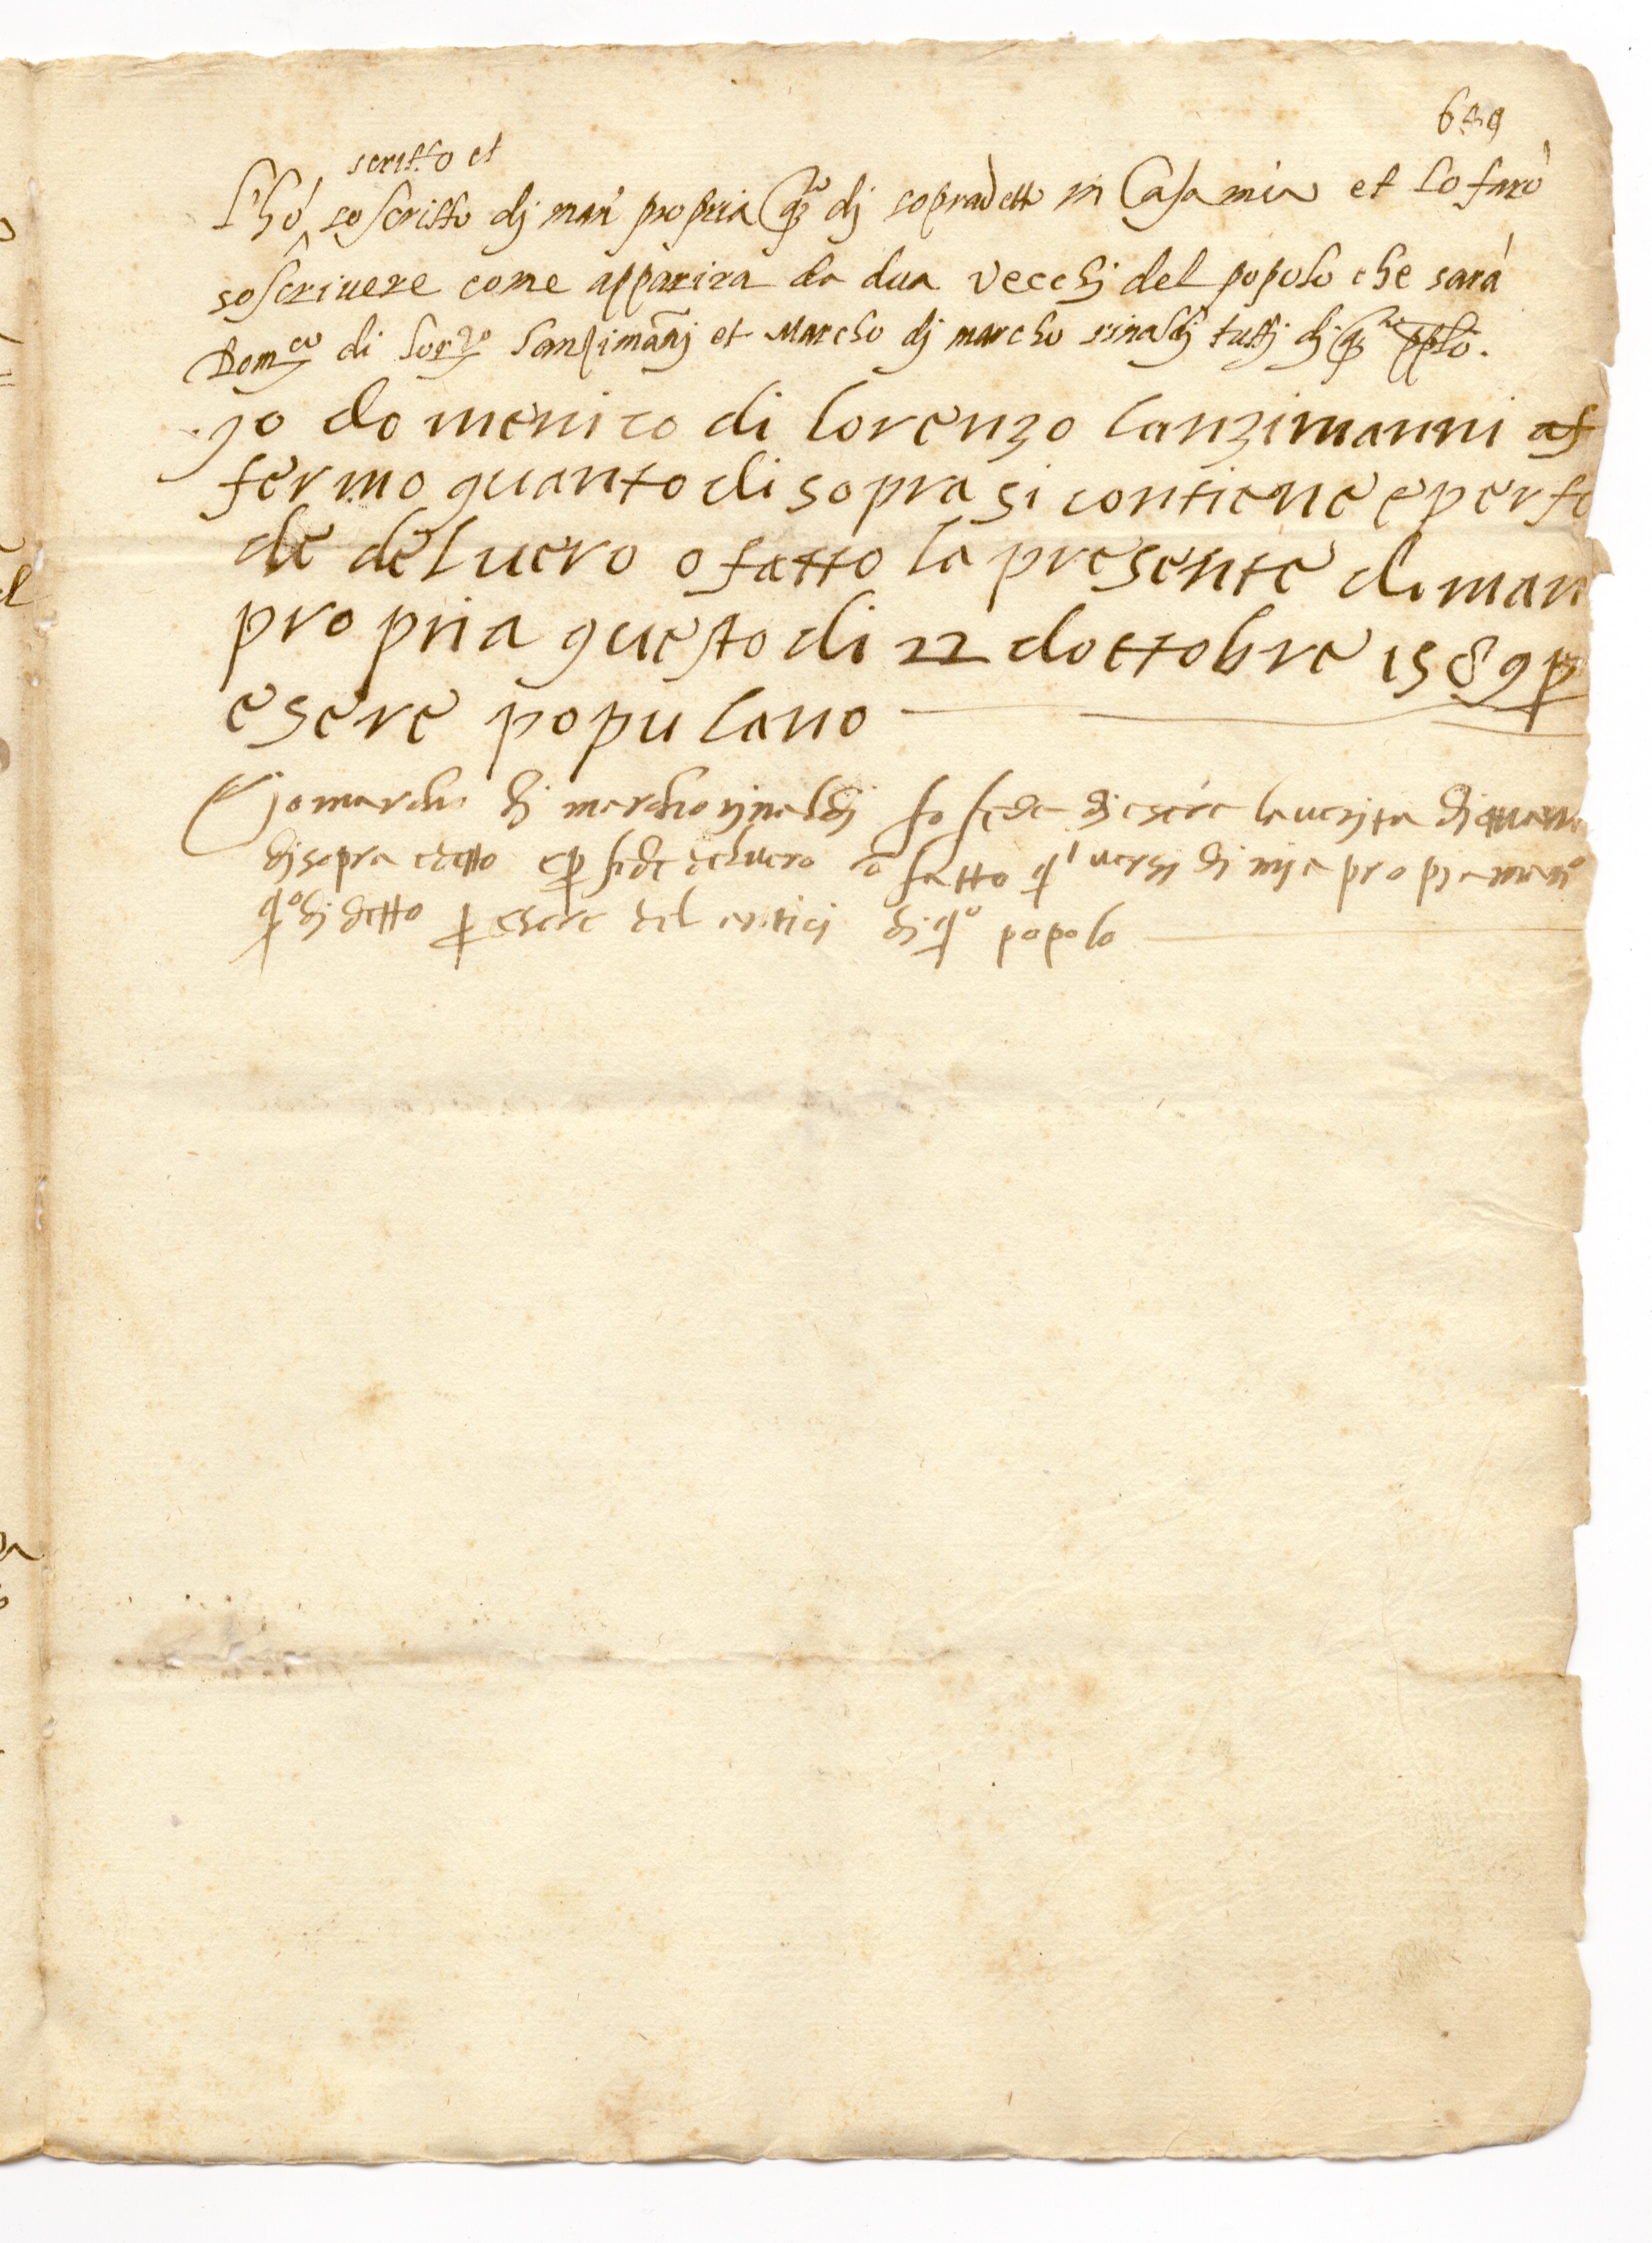 689
scritto et
l'hó soscritto dj man' propria q.to dj sopradetto in Casa mia et lo faró
soscrivere come apparira da dua vecchj del popolo che sará
Dom.co di Lor.zo lanzimānj et Marcho dj marcho rinaldj tuttj dj q.to pplo.
jo domenico di lorenzo lanzimanni af
fermo quanto di sopra si contiene e per fe
de del uero o fatto la presente di man
propria questo di 22 dottobre 1589 p
esere populano
Jo marcho dj marcho rjnaldj fo fede dj esere la uerjta dj quanto
dj sopra edetto e p fede deluero o fatto q.i uersj di mja propja mano
q.o dj detto p esere del antici dj q.o popolo